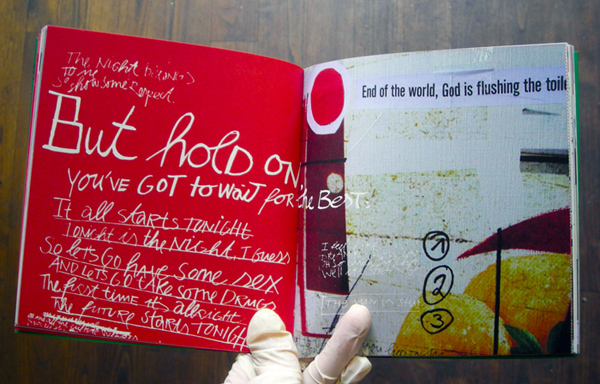 The Night belongs
to me
so show some respect.
But hold on,
you've got to wait for the Best.
It all starts tonight
Tonight is the night, I guess
So let's go have some sex
And let's go take some drugs
The first time it's allright
The future starts tonight
End of the world, God is flushing the toile
1
2
3